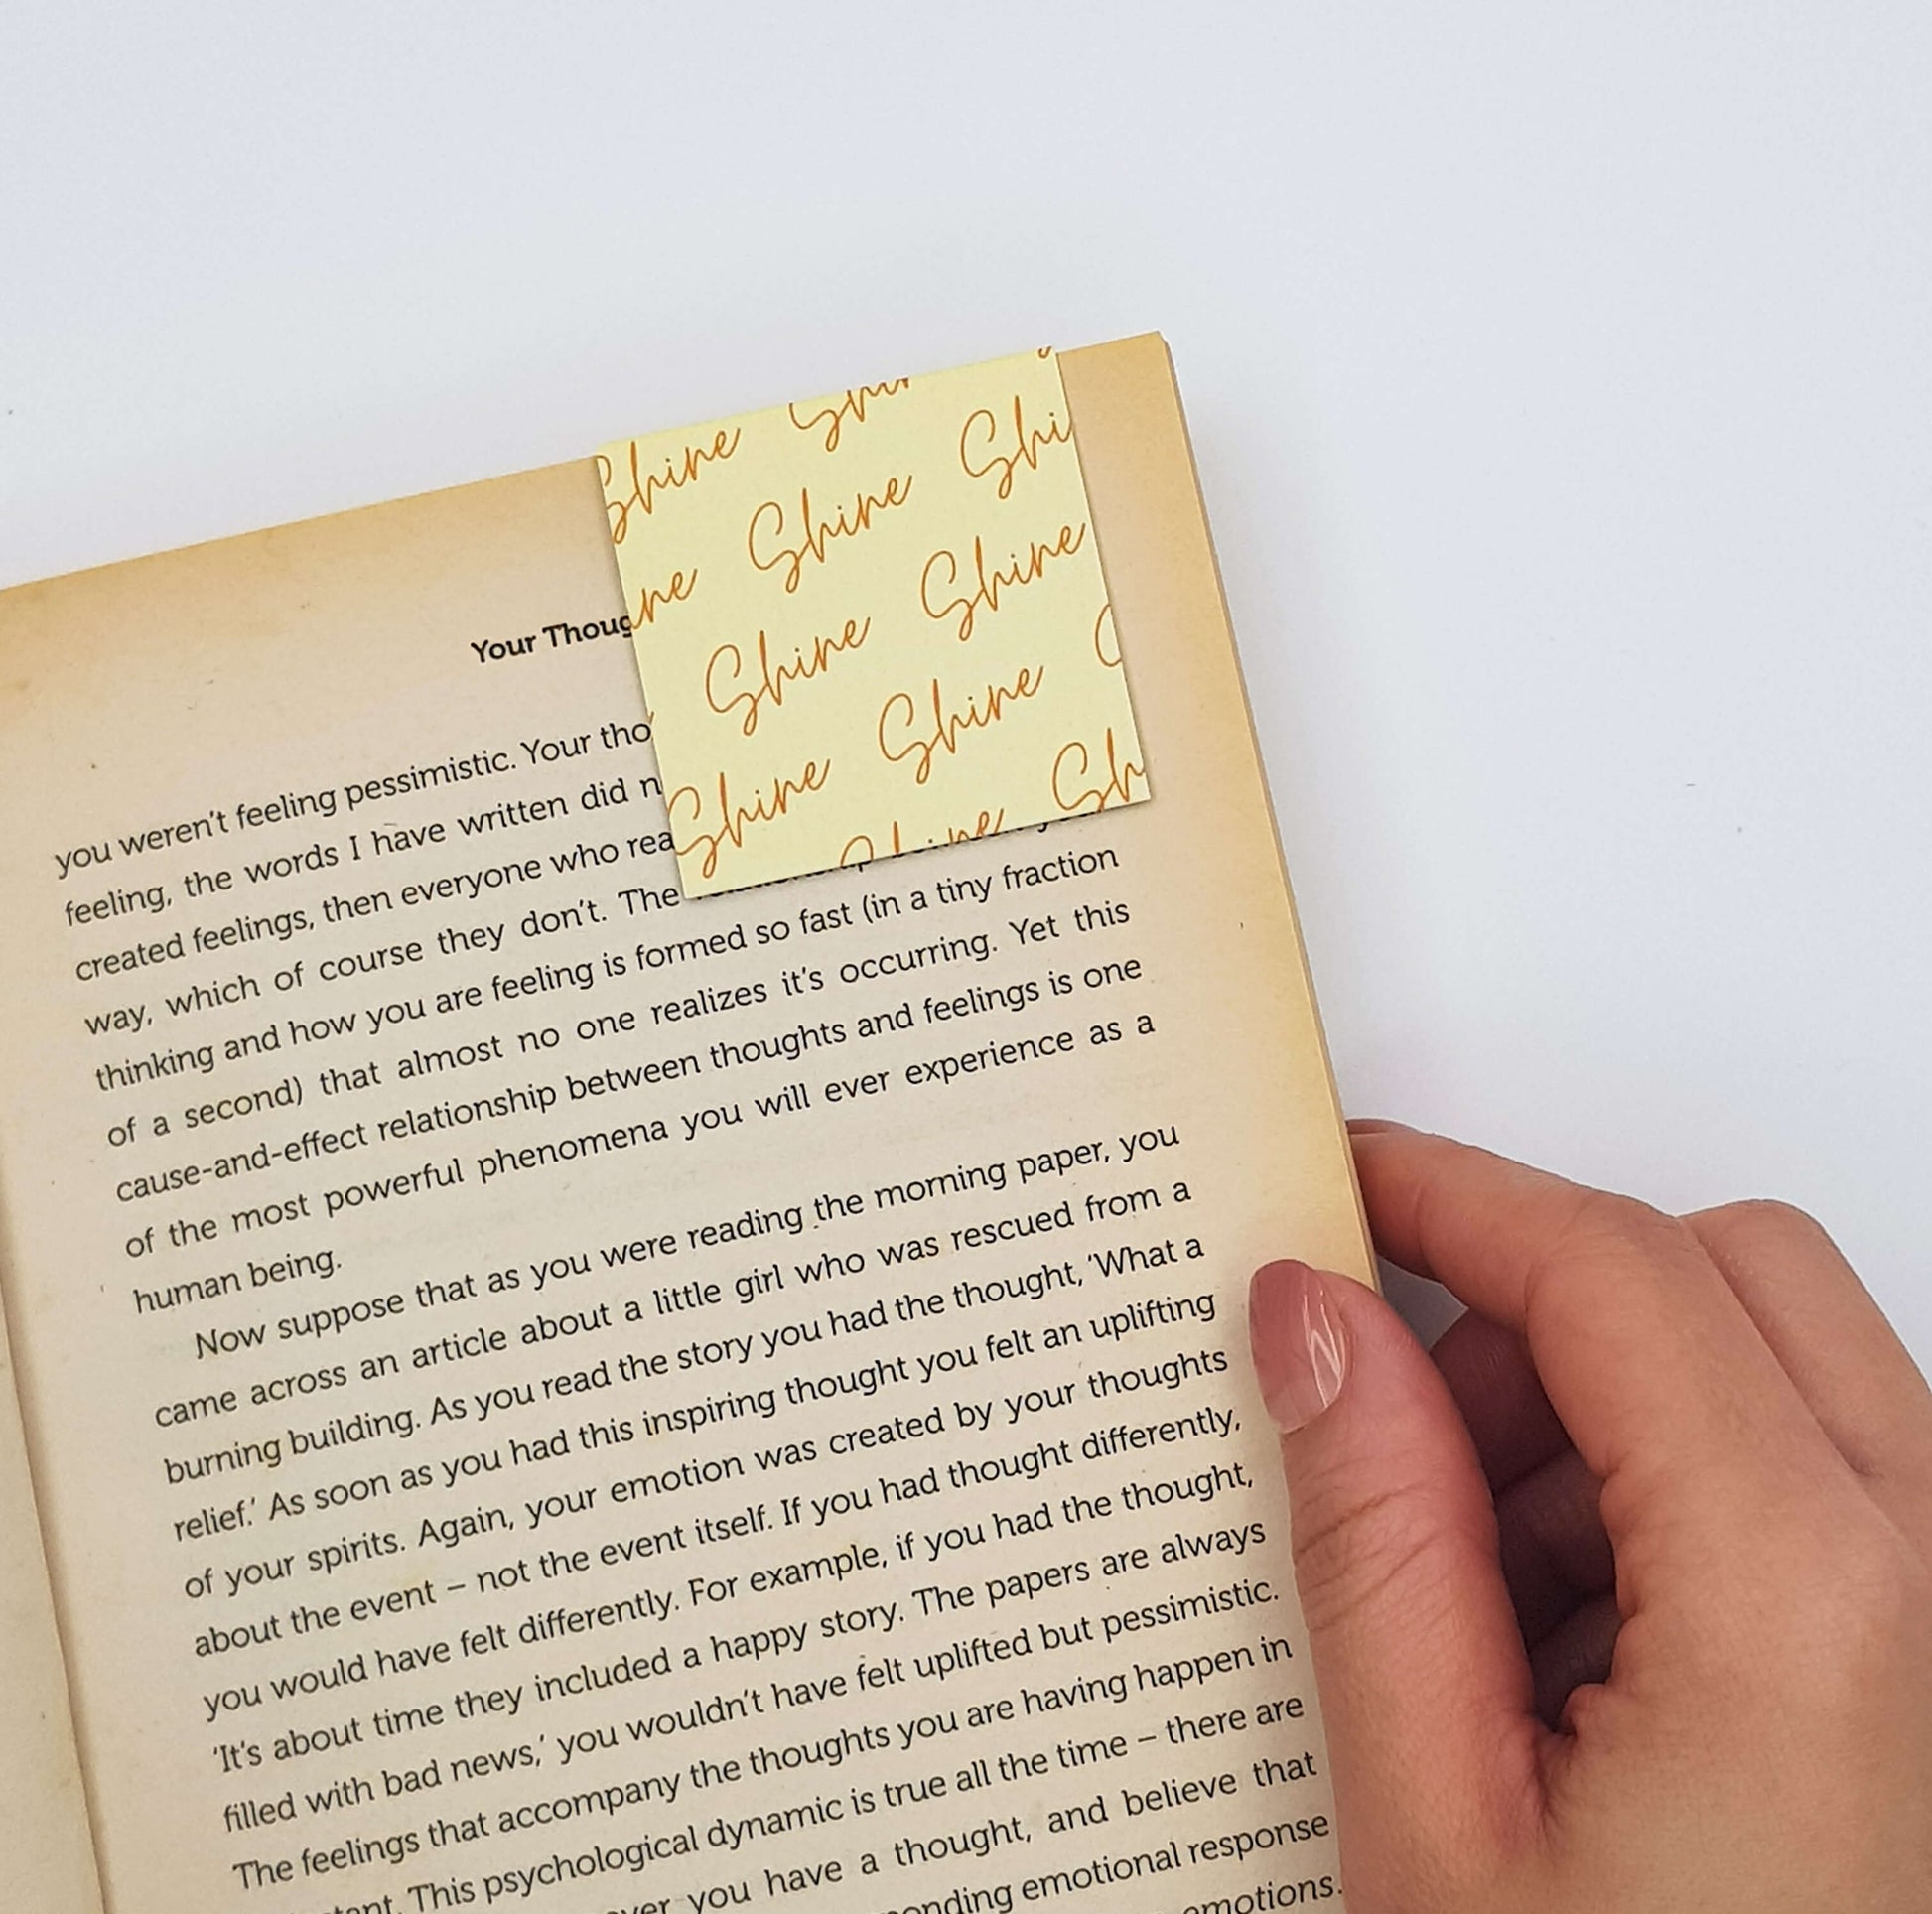 Shine
Shine Shi
Shine Shine
Shine Shine
Shine Sh
Your Thoug
you weren't feeling pessimistic. Your tho
feeling, the words I have written did n
created feelings, then everyone who rea
way, which of course they don't. The
thinking and how you are feeling is formed so fast (in a tiny fraction
of a second) that almost no one realizes it's occurring. Yet this
cause-and-effect relationship between thoughts and feelings is one
of the most powerful phenomena you will ever experience as a
human being.
Now suppose that as you were reading the morning paper, you
came across an article about a little girl who was rescued from a
burning building. As you read the story you had the thought, ‘What a
relief.’ As soon as you had this inspiring thought you felt an uplifting
of your spirits. Again, your emotion was created by your thoughts
about the event – not the event itself. If you had thought differently,
you would have felt differently. For example, if you had the thought,
‘It's about time they included a happy story. The papers are always
filled with bad news,’ you wouldn't have felt uplifted but pessimistic.
The feelings that accompany the thoughts you are having happen in
tant. This psychological dynamic is true all the time – there are
ver you have a thought, and believe that
onding emotional response
emotions.